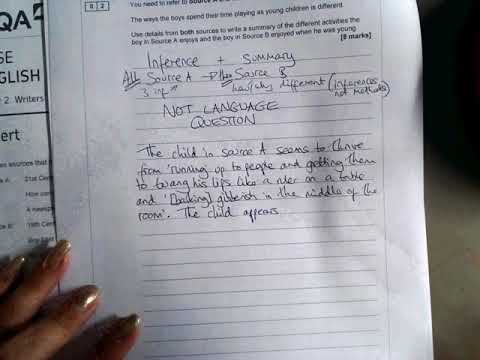 You need to refer to Source A
0 2
The ways the boys spend their time playing as young children is different.
Use details from both sources to write a summary of the different activities the
boy in Source A enjoys and the boy in Source B enjoyed when he was young
[8 marks]
QA
SE
ENGLISH
2 Writers
ert
sources that
e A: 21st Cen
How con
A newspa
19th Cent
Inference + summary
All Source A → Source B
3 inf how/why different (inferences not methods)
NOT LANGUAGE
QUESTION
The child in source A seems to thrive
from 'running up to people and getting them
to twang his lips like a ruler on a table
and '[talking] gibberish in the middle of the
room'. The child appears